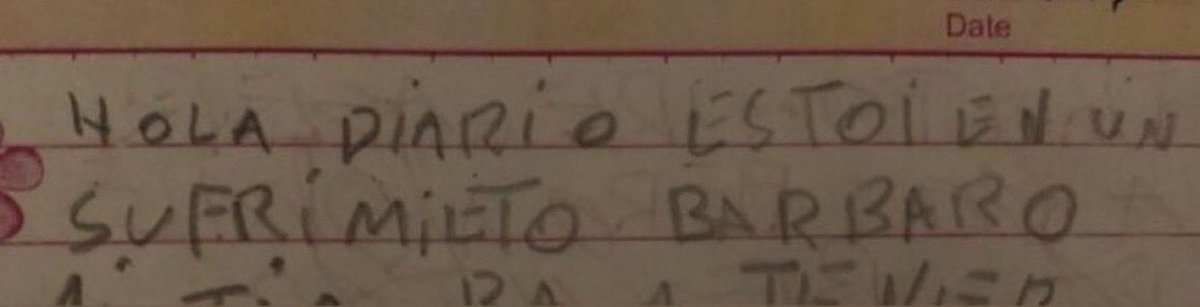 Date
HOLA DIARIO ESTOI EN UN
SUFRIMIETO BARBARO